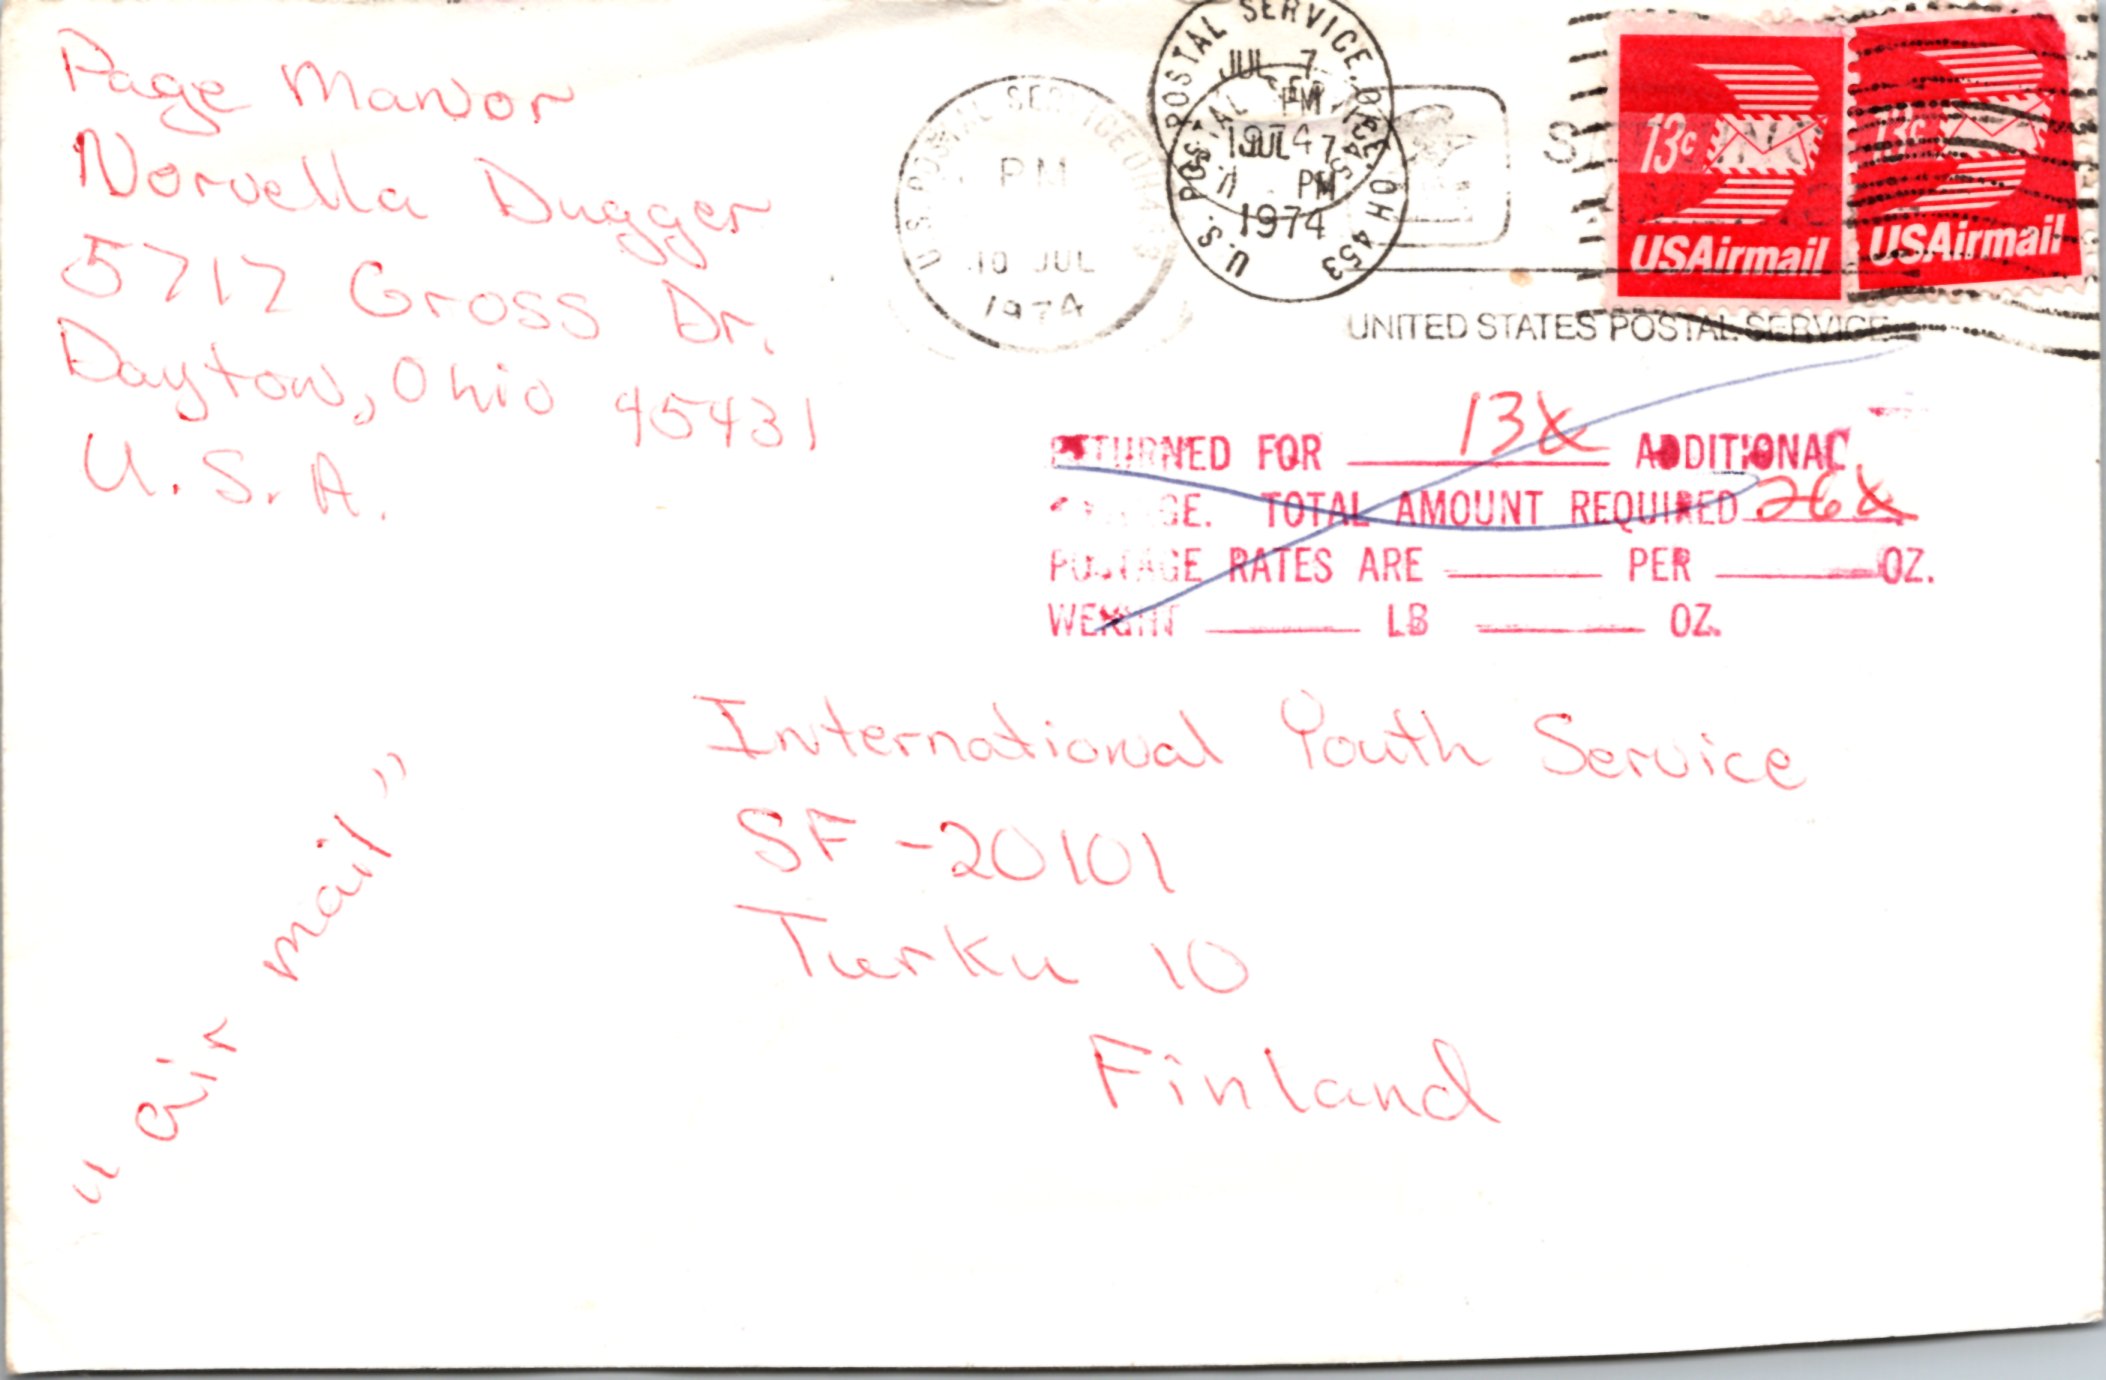 Page Manor
Norvella Dugger
5717 Gross Dr.
Dayton, Ohio 45431
U.S.A.
U.S. POSTAL SERVICE
PM
10 JUL
1974
U.S. POSTAL SERVICE, OH 453
JUL 7
PM
1974
JUL 7
PM
1974
13c
USAirmail
13c
USAirmail
UNITED STATES POSTAL SERVICE
RETURNED FOR 13¢ ADDITIONAL
POSTAGE. TOTAL AMOUNT REQUIRED 26¢
POSTAGE RATES ARE ____ PER ____ OZ.
WEIGHT ____ LB ____ OZ.
International Youth Service
SF-20101
Turku 10
Finland
"air mail"